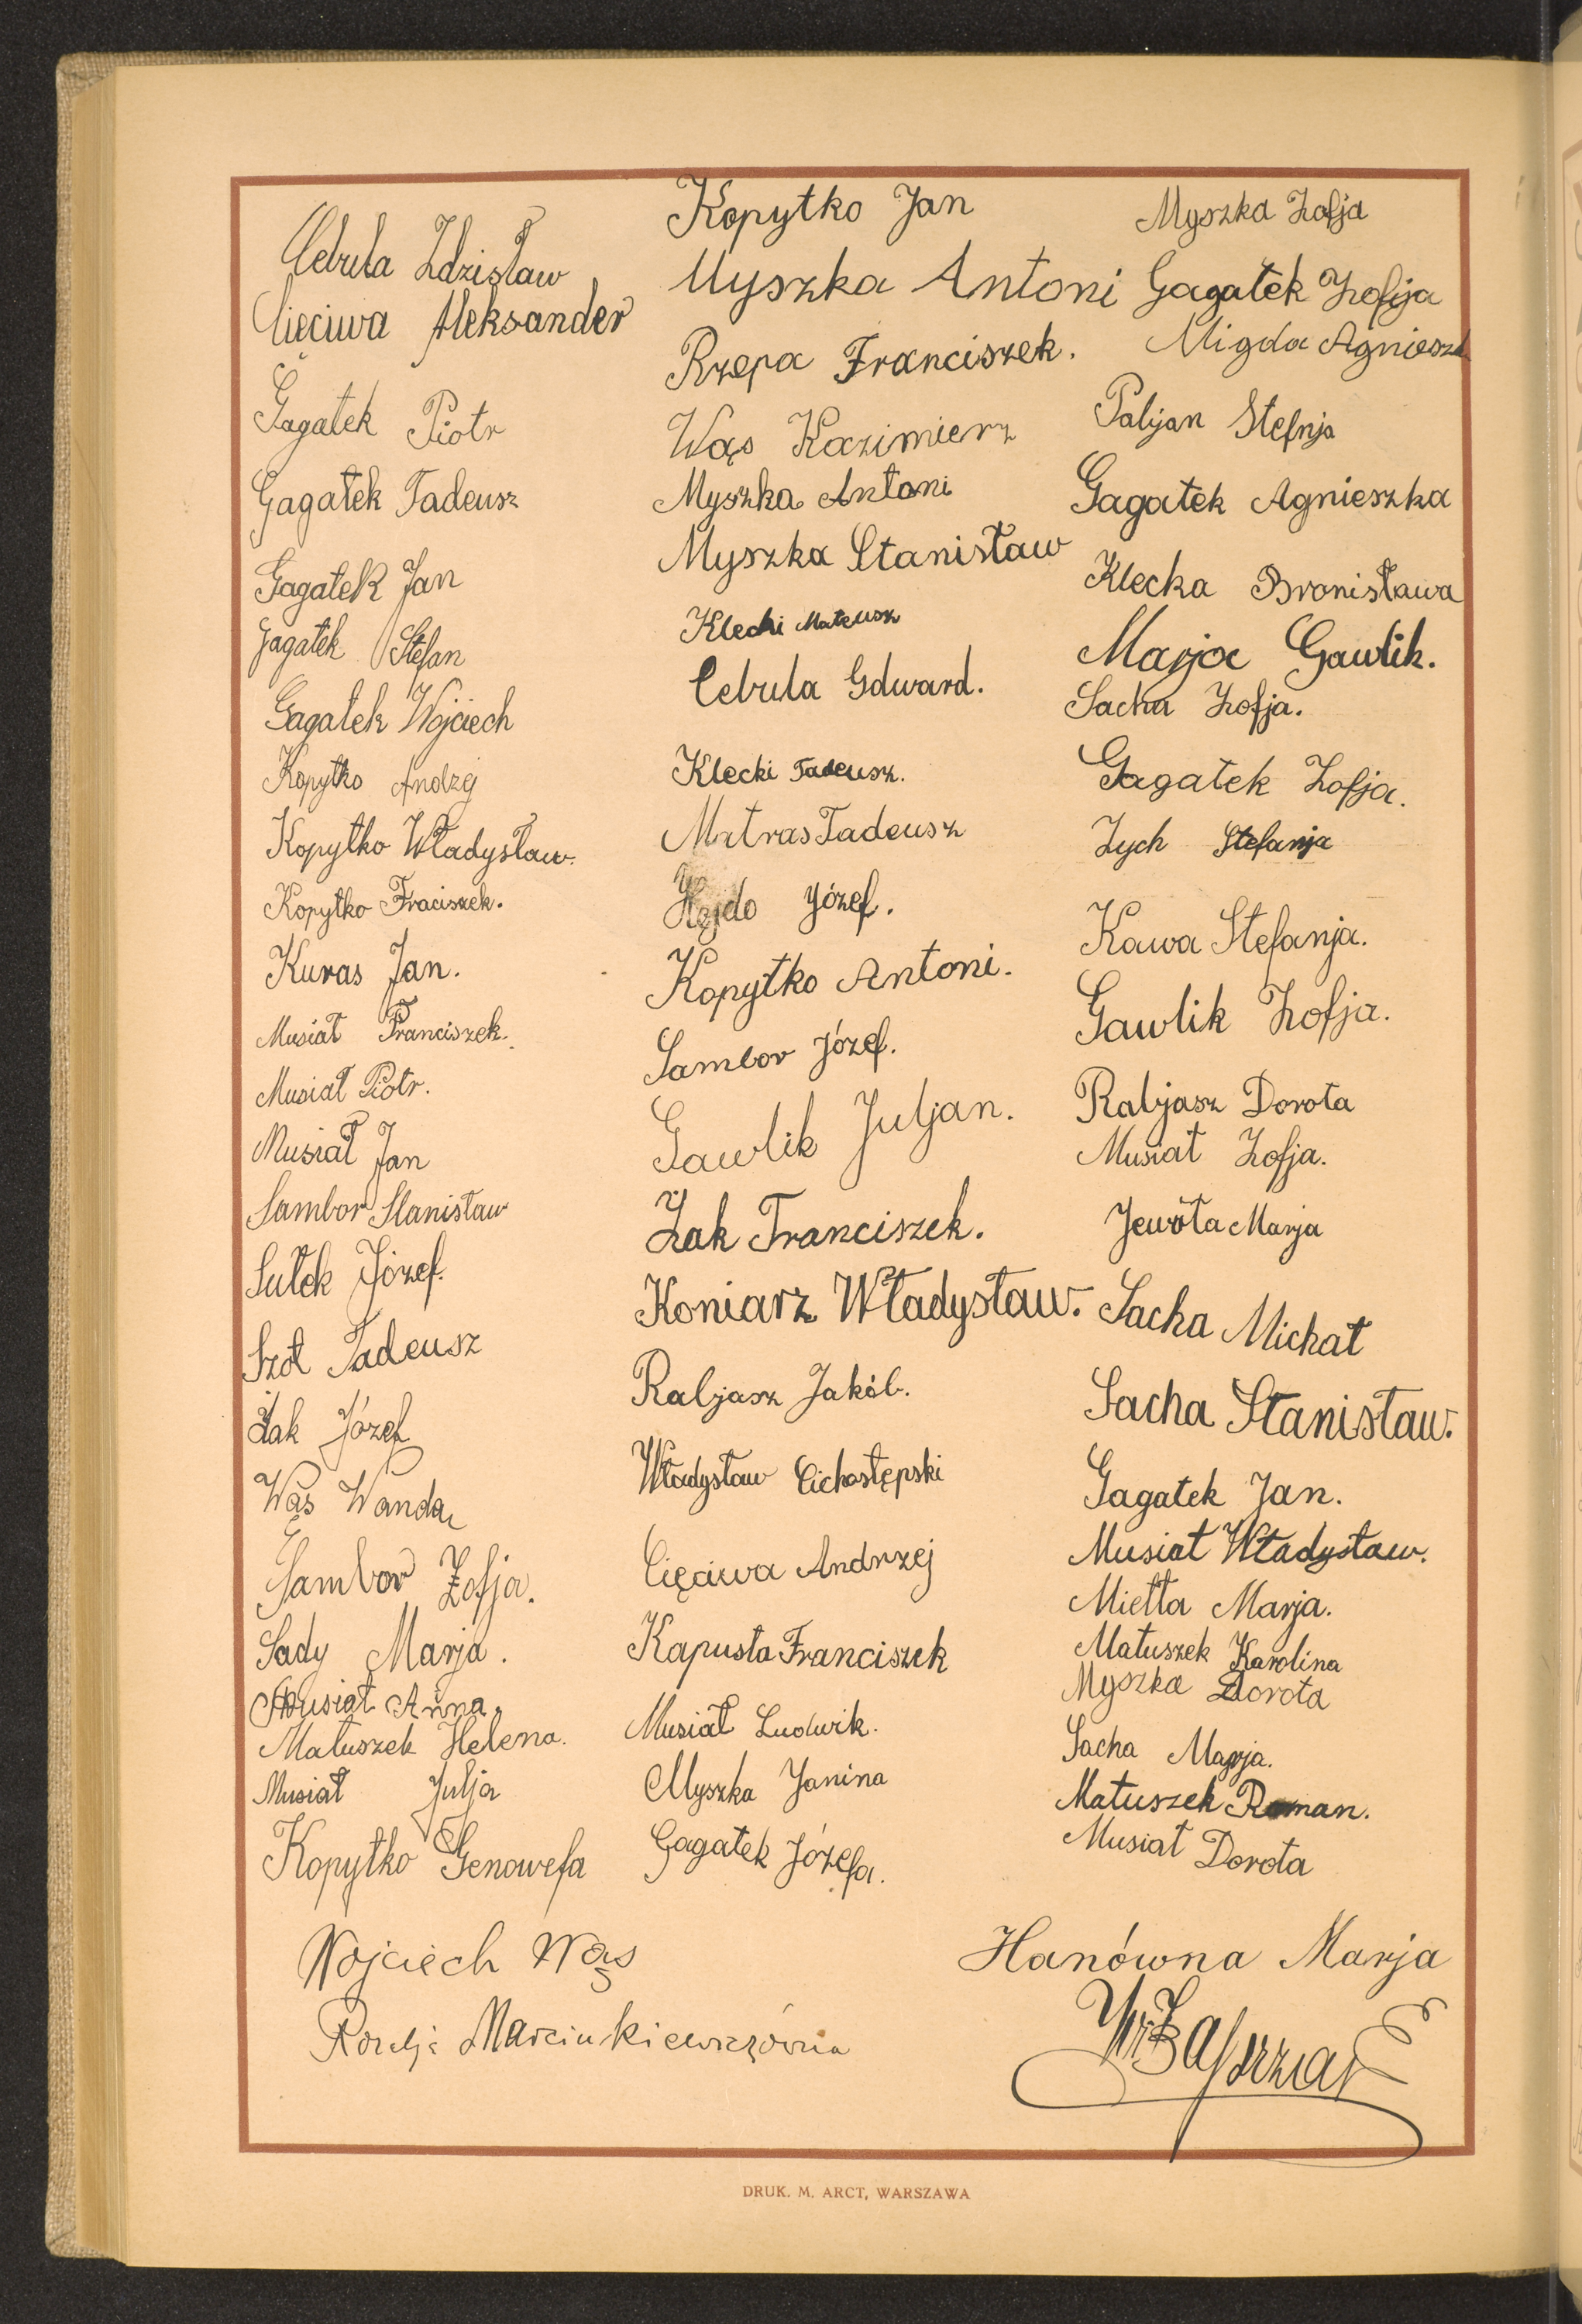 Cebula Zdzisław
Cięciwa Aleksander
Gagatek Piotr
Gagatek Tadeusz
Gagatek Jan
Gagatek Stefan
Gagatek Wojciech
Kopytko Andzej
Kopytko Władysław.
Kopytko Fraciszek.
Kuras Jan.
Musiał Franciszek.
Musiał Piotr.
Musiał Jan
Sambor Stanisław
Sutek Józef.
Szot Tadeusz
Żak Józef
Wąs Wanda
Sambor Zofja.
Sady Marja.
Musiał Anna.
Matuszek Helena.
Musiał Julja
Kopytko Genowefa
Kopytko Jan
Myszka Antoni
Rzepa Franciszek.
Wąs Kazimierz
Myszka Antoni
Myszka Stanisław
Klecki Mateusz
Cebula Edward.
Klecki Tadeusz.
Matras Tadeusz
Józef.
Kopytko Antoni.
Sambor Józef.
Gawlik Juljan.
Żak Franciszek.
Koniarz Władysław.
Rabjasz Jakób.
Władysław Cichostępski
Cięciwa Andrzej
Kapusta Franciszek
Musiał Ludwik.
Myszka Janina
Gagatek Józefa.
Myszka Zofja
Gagatek Zofija
Migda Agnieszk
Pabjan Stefnja
Gagatek Agnieszka
Klecka Bronisława
Marja Gawlik.
Sacha Zofja.
Gagatek Zofja.
Zych Stefanja
Kawa Stefanja.
Gawlik Zofja.
Rabjasz Dorota
Musiał Zofja.
Jewóta Marja
Sacha Michał
Sacha Stanisław.
Gagatek Jan.
Musiał Władysław.
Mietta Marja.
Matuszek Karolina
Myszka Dorota
Sacha Marja.
Matuszek Roman.
Musiał Dorota
Wojciech Wąs
Rozalja Marcinkiewiczówna
Hanówna Marja
DRUK. M. ARCT, WARSZAWA